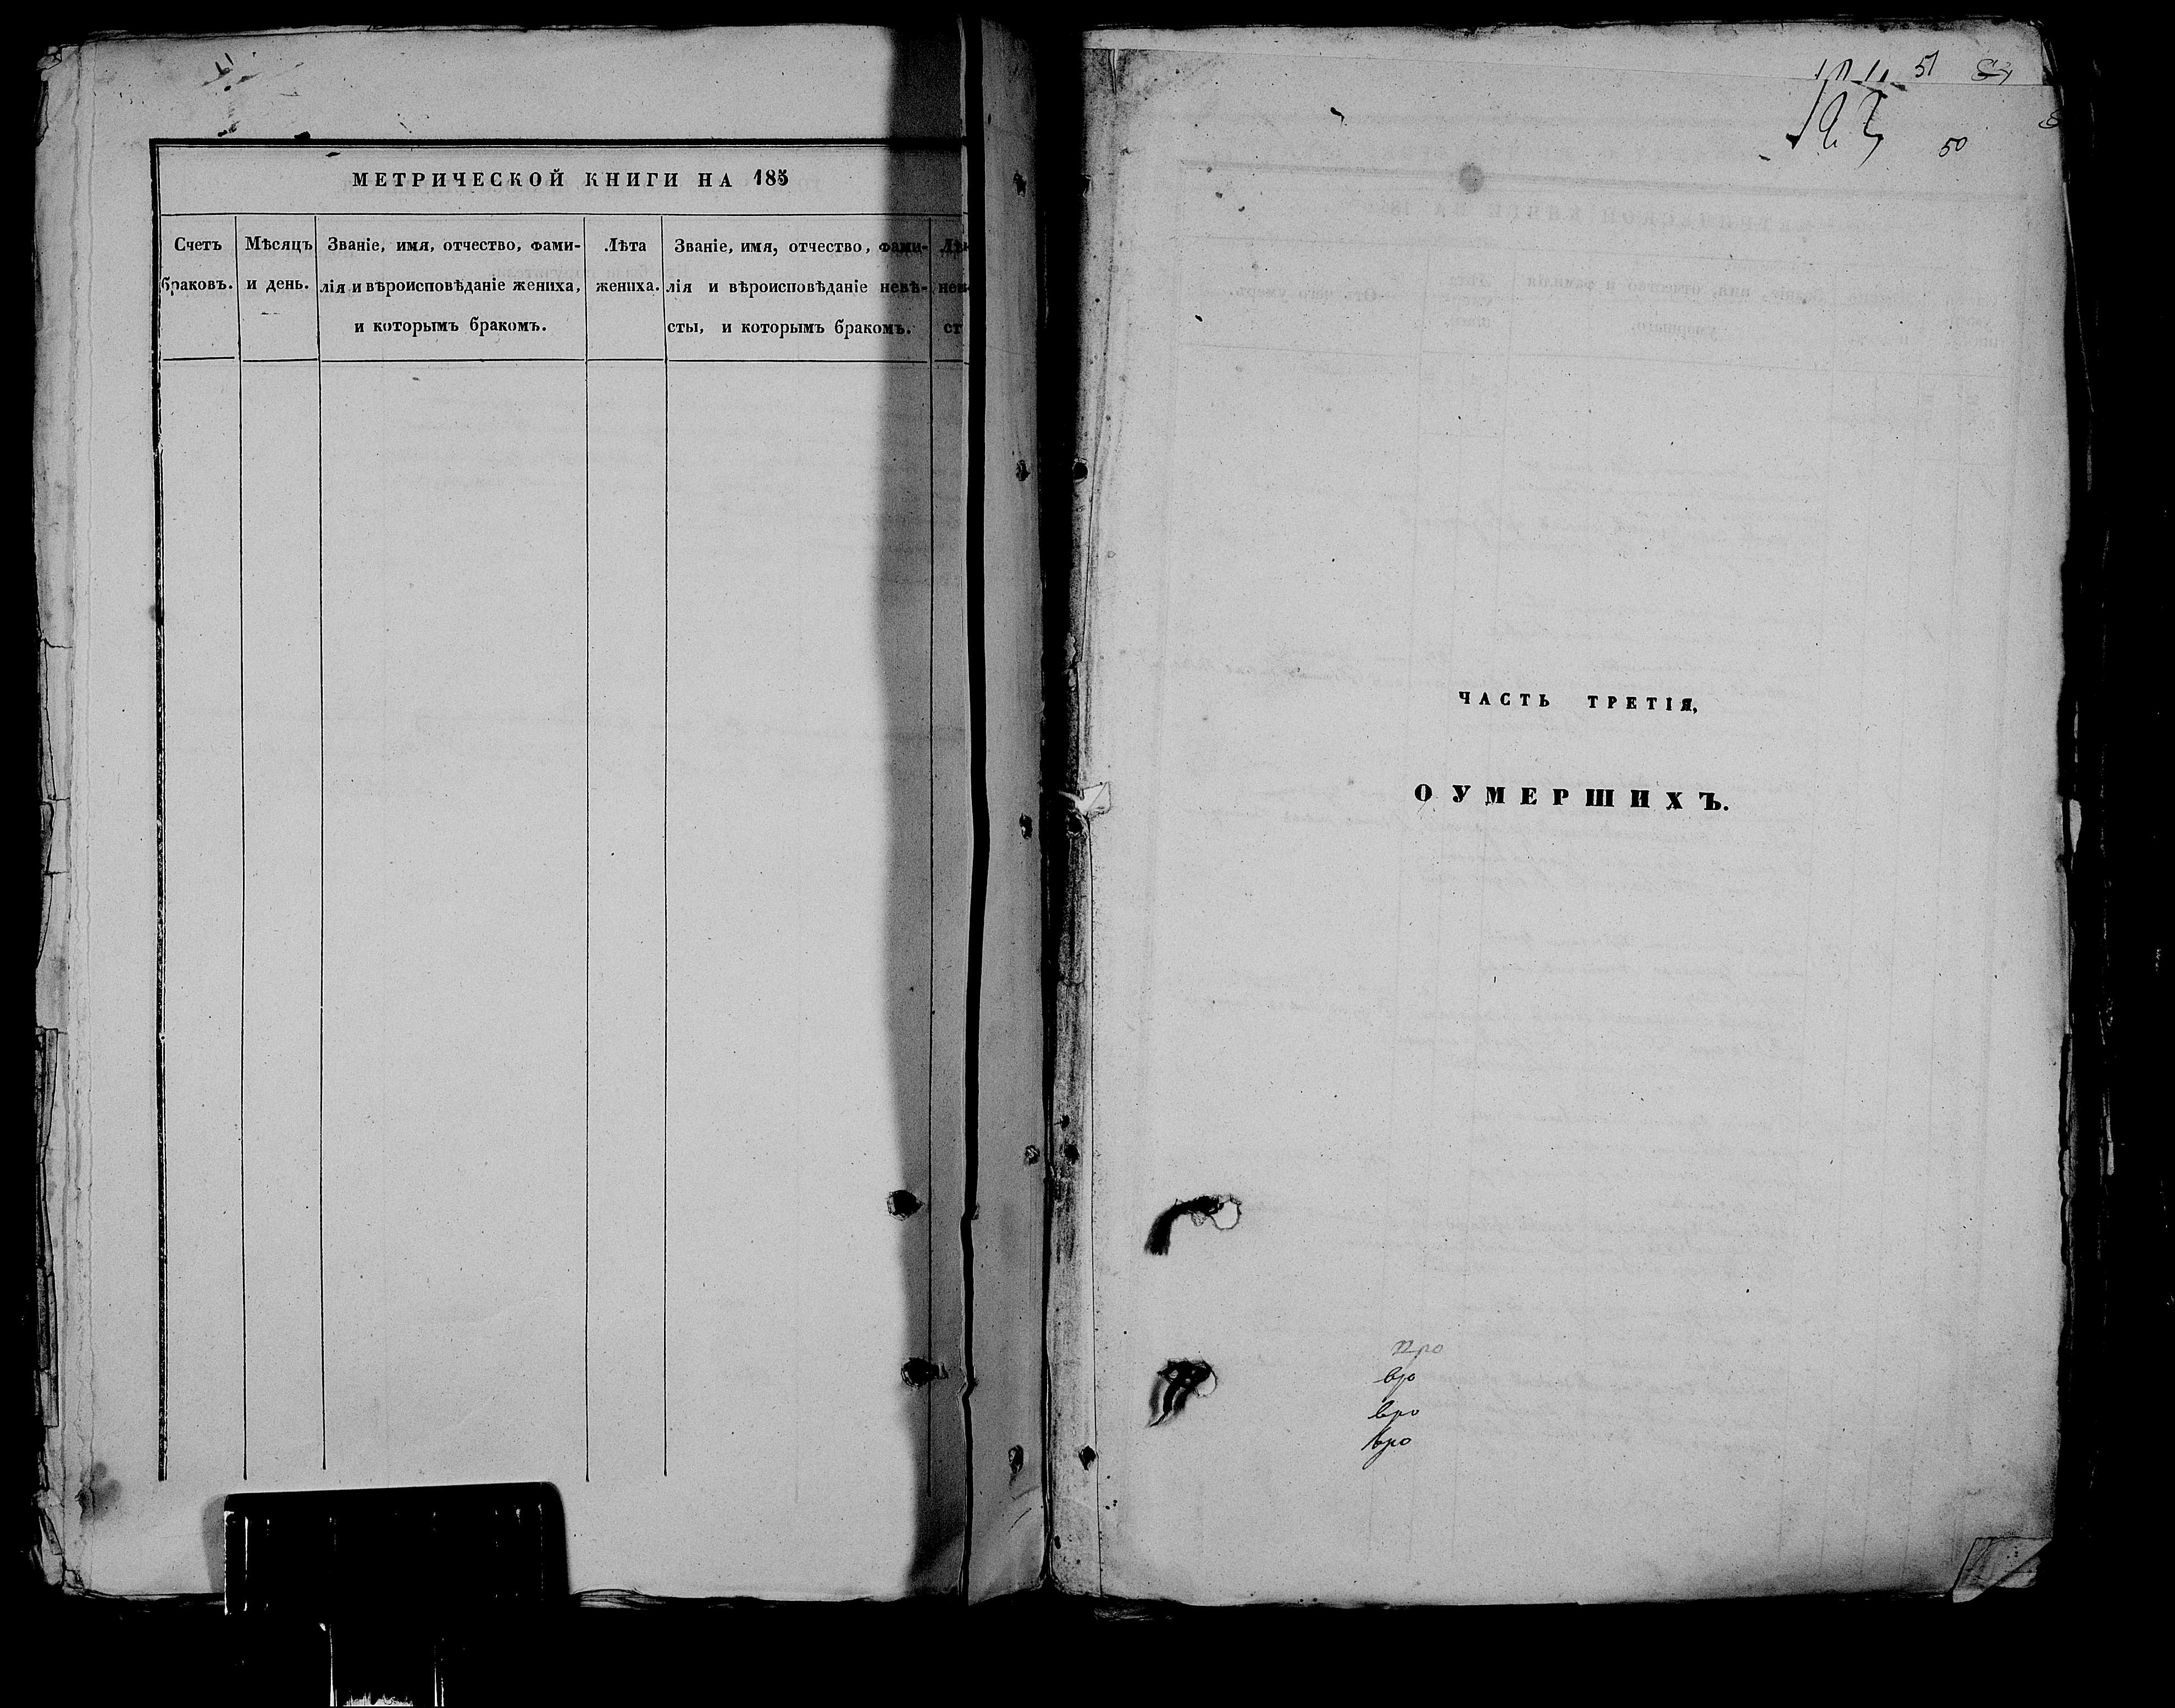 МЕТРИЧЕСКОЙ КНИГИ НА 185
Счетъ браковъ.
Мѣсяцъ и день.
Званіе, имя, отчество, фами-
лія и вѣроисповѣданіе жениха,
и которымъ бракомъ.
Лѣта
жениха.
Званіе, имя, отчество, фами-
лія и вѣроисповѣданіе невѣ-
сты, и которымъ бракомъ.
51
50
ЧАСТЬ ТРЕТІЯ,
О УМЕРШИХЪ.
про
вро
вро
вро